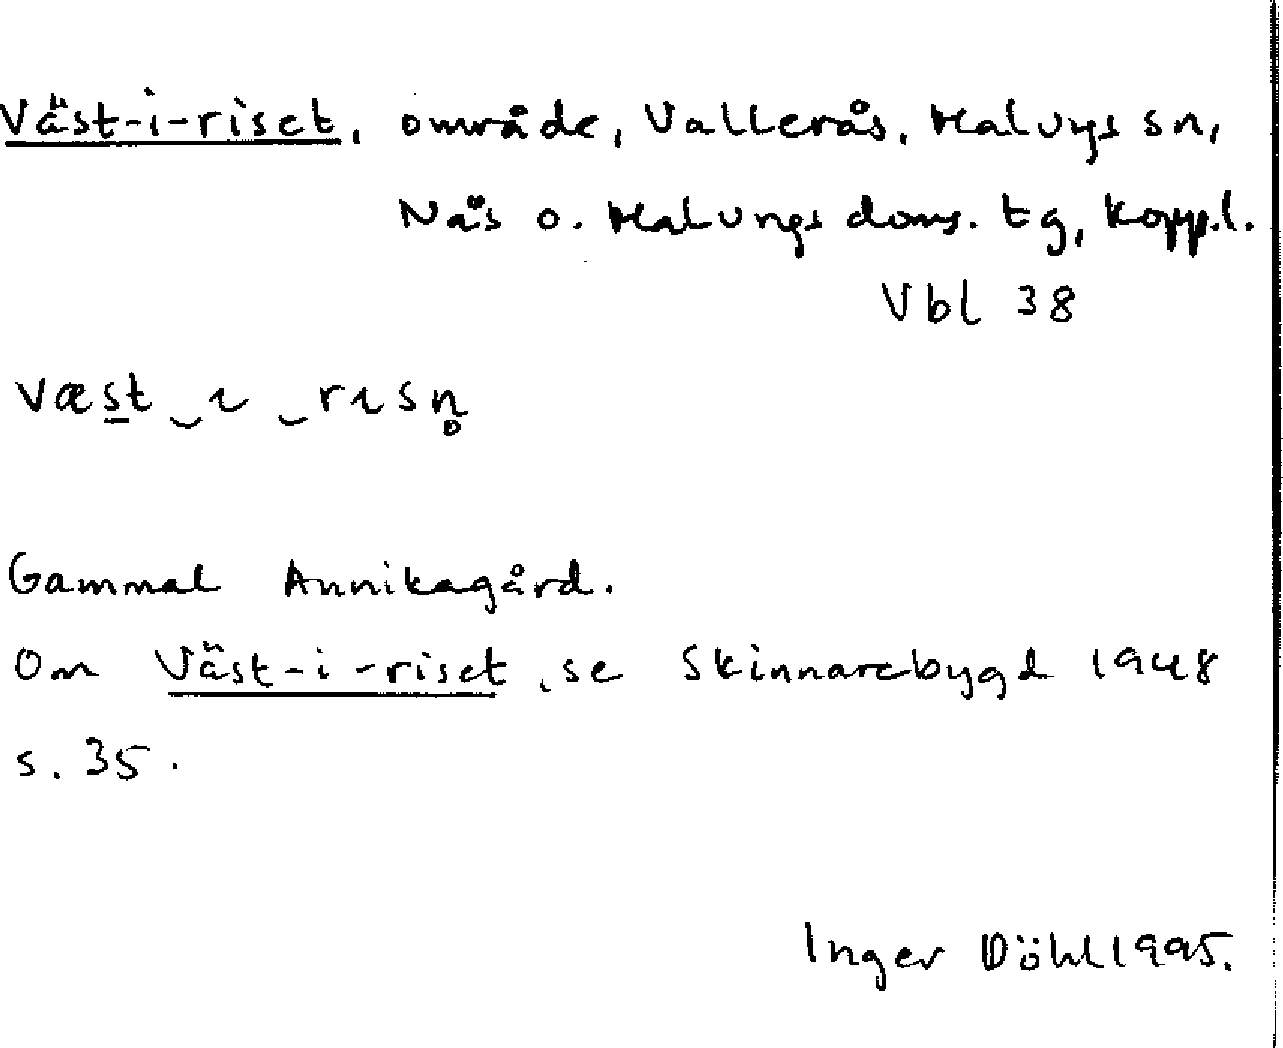 Väst-i-riset, område, Vallerås, Malungs sn,
Näs o. Malungs doms. tg, Kopp.l.
Vbl 38
væst‿ɩ‿rɩsn̥
Gammal Annikagård.
Om Väst-i-riset, se Skinnarebygd 1948
s. 35.
Inger Döhl 1995.